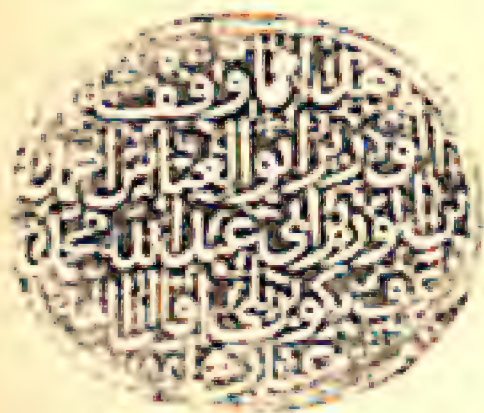 هذا ما وقف
الوزير ابو العباس احمد
بن الوزير ابي عبد الله محمد
عرف بكوپريلي اقال الله
عثارهما